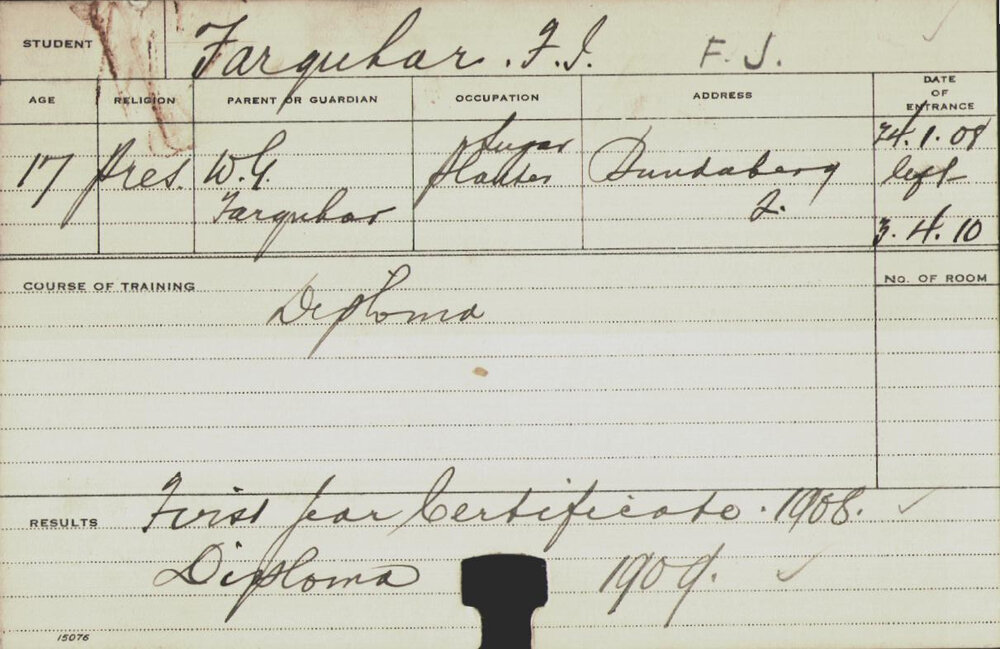 STUDENT Farquhar. F.J. F.J.
AGE RELIGION PARENT OR GUARDIAN OCCUPATION ADDRESS DATE OF ENTRANCE
17 Pres. W.G. Farquhar Sugar Planter Bundaberg Q. 24.1.08
left
3.4.10
COURSE OF TRAINING Diploma No. OF ROOM
RESULTS First Year Certificate. 1908.
Diploma 1909.
15076